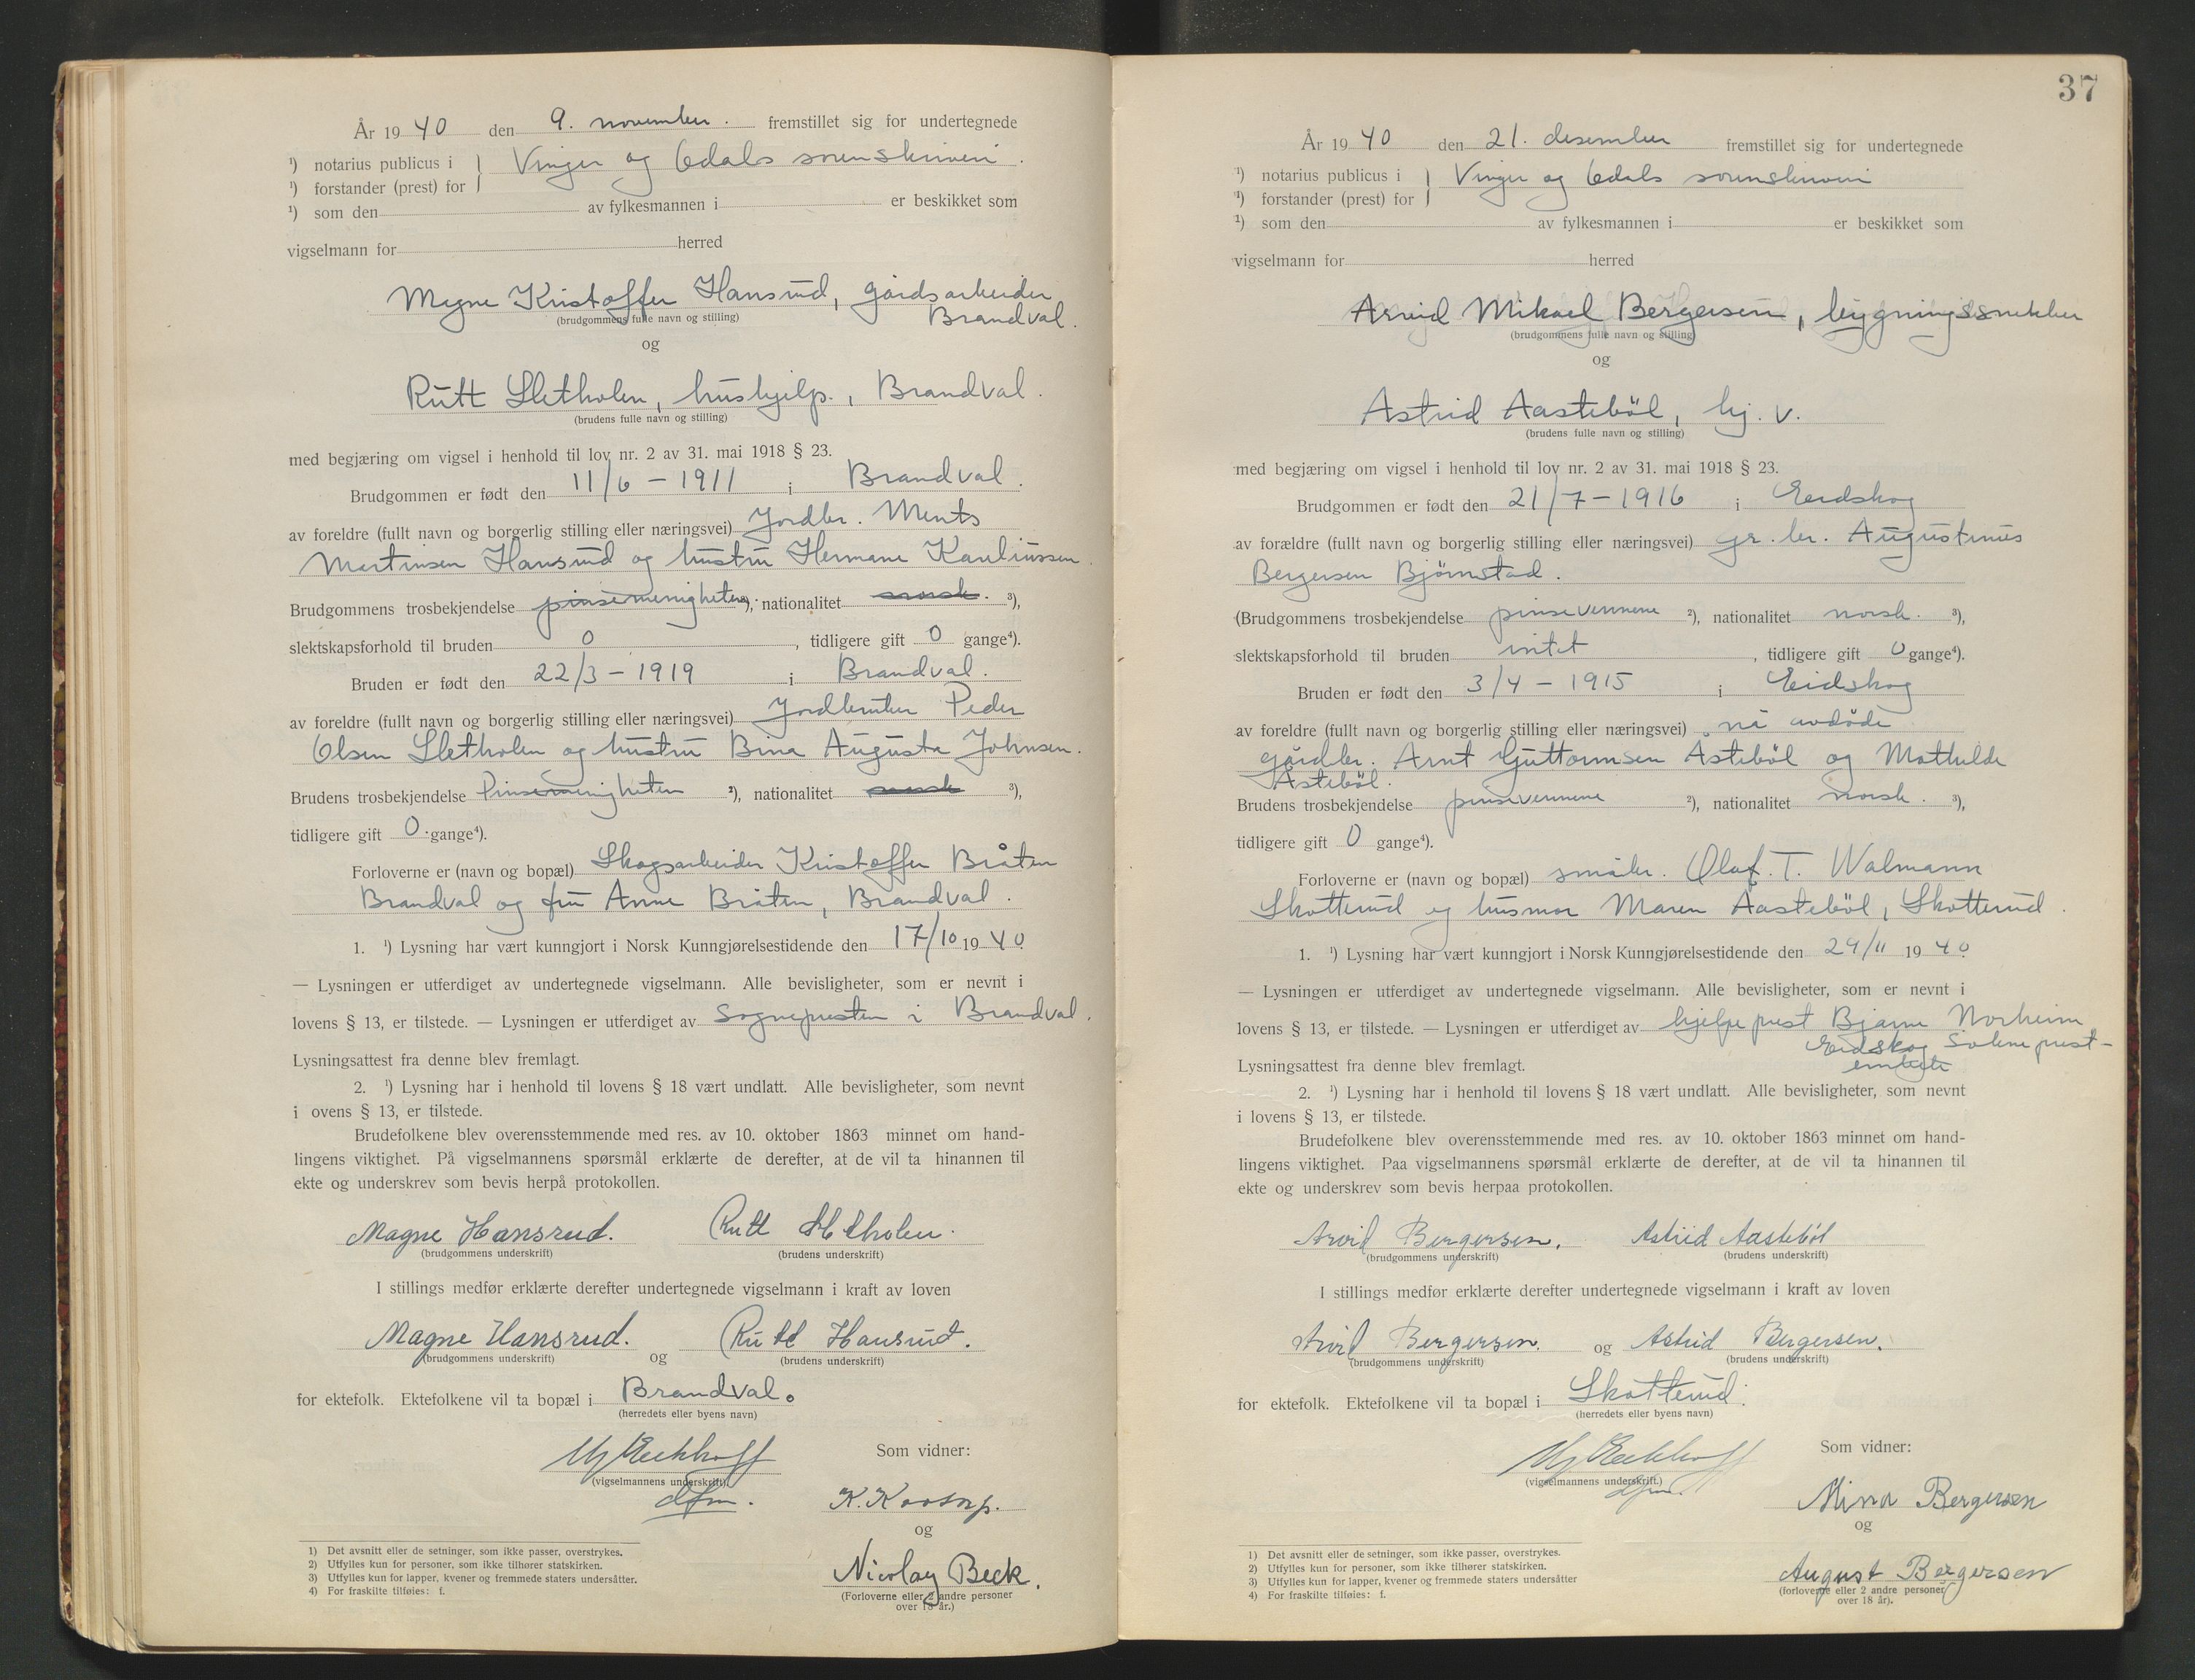 År 1940 den 9. november. fremstillet sig for undertegnede
¹) notarius publicus i } Vinger og Odals sorenskriveri.
¹) forstander (prest) for }
¹) som den av fylkesmannen i er beskikket som
vigselmann for herred
Magne Kristoffer Hansrud, gårdsarbeider
Brandval.
(brudgommens fulle navn og stilling)
og
Rutt Sletholen, hushjelp., Brandval.
(brudens fulle navn og stilling)
med begjæring om vigsel i henhold til lov nr. 2 av 31. mai 1918 § 23.
Brudgommen er født den 11/6 - 1911 i Brandval.
av foreldre (fullt navn og borgerlig stilling eller næringsvei) Jordbr. Ments
Martinsen Hansrud og hustru Hermane Karliussen.
Brudgommens trosbekjendelse pinsemenigheten ²), nationalitet norsk. ³),
slektskapsforhold til bruden 0, tidligere gift 0 gange⁴).
Bruden er født den 22/3 - 1919 i Brandval.
av foreldre (fullt navn og borgerlig stilling eller næringsvei) Jordbruker Peder
Olsen Sletholen og hustru Bina Augusta Johnsen.
Brudens trosbekjendelse Pinsemenigheten ²), nationalitet norsk ³),
tidligere gift 0. gange⁴).
Forloverne er (navn og bopæl) Skogsarbeider Kristoffer Bråten
Brandval og fru Anne Bråten, Brandval.
1. ¹) Lysning har vært kunngjort i Norsk Kunngjørelsestidende den 17/10 1940.
— Lysningen er utferdiget av undertegnede vigselmann. Alle bevisligheter, som er nevnt i
lovens § 13, er tilstede. — Lysningen er utferdiget av Sognepresten i Brandval.
Lysningsattest fra denne blev fremlagt.
2. ¹) Lysning har i henhold til lovens § 18 vært undlatt. Alle bevisligheter, som nevnt
i ovens § 13, er tilstede.
Brudefolkene blev overensstemmende med res. av 10. oktober 1863 minnet om hand-
lingens viktighet. På vigselmannens spørsmål erklærte de derefter, at de vil ta hinannen til
ekte og underskrev som bevis herpå protokollen.
Magne Hansrud. Rutt Sletholen.
(brudgommens underskrift) (brudens underskrift)
I stillings medfør erklærte derefter undertegnede vigselmann i kraft av loven
Magne Hansrud. og Rutt Hansrud.
(brudgommens underskrift) (brudens underskrift)
for ektefolk. Ektefolkene vil ta bopæl i Brandval.
(herredets eller byens navn)
Eckhoff
(vigselmannens underskrift)
dfm.
Som vidner:
K. Kostorp.
og
Nicolay Beck.
(Forloverne eller 2 andre personer
over 18 år.)
1) Det avsnitt eller de setninger, som ikke passer, overstrykes.
2) Utfylles kun for personer, som ikke tilhører statskirken.
3) Utfylles kun for lapper, kvener og fremmede staters undersåtter.
4) For fraskilte tilføies: f.
37
År 1940 den 21. desember fremstillet sig for undertegnede
¹) notarius publicus i } Vinger og Odals sorenskriveri
¹) forstander (prest) for }
¹) som den av fylkesmannen i er beskikket som
vigselmann for herred
Arvid Mikael Bergersen, bygningssnekker
(brudgommens fulle navn og stilling)
og
Astrid Aastebøl, hj. v.
(brudens fulle navn og stilling)
med begjæring om vigsel i henhold til lov nr. 2 av 31. mai 1918 § 23.
Brudgommen er født den 21/7 - 1916 i Eidskog
av forældre (fullt navn og borgerlig stilling eller næringsvei) gr. br. Augustinus
Bergersen Bjørnstad.
(Brudgommens trosbekjendelse pinsevennene ²), nationalitet norsk. ³),
slektskapsforhold til bruden intet, tidligere gift 0 gange⁴).
Bruden er født den 3/4 - 1915 i Eidskog
av foreldre (fullt navn og borgerlig stilling eller næringsvei) nå avdøde
gårdbr. Arnt Guttormsen Åstebøl og Mathilde
Åstebøl.
Brudens trosbekjendelse pinsevennene ²), nationalitet norsk. ³),
tidligere gift 0 gange⁴).
Forloverne er (navn og bopæl) småbr. Olaf. T. Walmann
Skotterud og husmor Maren Aastebøl, Skotterud.
1. ¹) Lysning har vært kunngjort i Norsk Kunngjørelsestidende den 29/11 1940.
— Lysningen er utferdiget av undertegnede vigselmann. Alle bevisligheter, som er nevnt i
lovens § 13, er tilstede. — Lysningen er utferdiget av hjelpeprest Bjarne Norheim
Eidskog Sokneprest-
embete
Lysningsattest fra denne blev fremlagt.
2. ¹) Lysning har i henhold til lovens § 18 vært undlatt. Alle bevisligheter, som nevnt
i lovens § 13, er tilstede.
Brudefolkene blev overensstemmende med res. av 10. oktober 1863 minnet om hand-
lingens viktighet. Paa vigselmannens spørsmål erklærte de derefter, at de vil ta hinannen til
ekte og underskrev som bevis herpaa protokollen.
Arvid Bergersen. Astrid Aastebøl
(brudgommens underskrift) (brudens underskrift)
I stillings medfør erklærte derefter undertegnede vigselmann i kraft av loven
Arvid Bergersen. og Astrid Bergersen.
(brudgommens underskrift) (brudens underskrift)
for ektefolk. Ektefolkene vil ta bopæl i Skotterud.
(herredets eller byens navn)
Eckhoff
(vigselmannens underskrift.)
dfm.
Som vidner:
Minna Bergersen
og
August Bergersen
(forloverne eller 2 andre personer
over 18 år).
1) Det avsnitt eller de setninger, som ikke passer, overstrykes.
2) Utfylles kun for personer, som ikke tilhører statskirken.
3) Utfylles kun for lapper, kvener og fremmede staters undersåtter
4) For fraskilte tilføies: f.